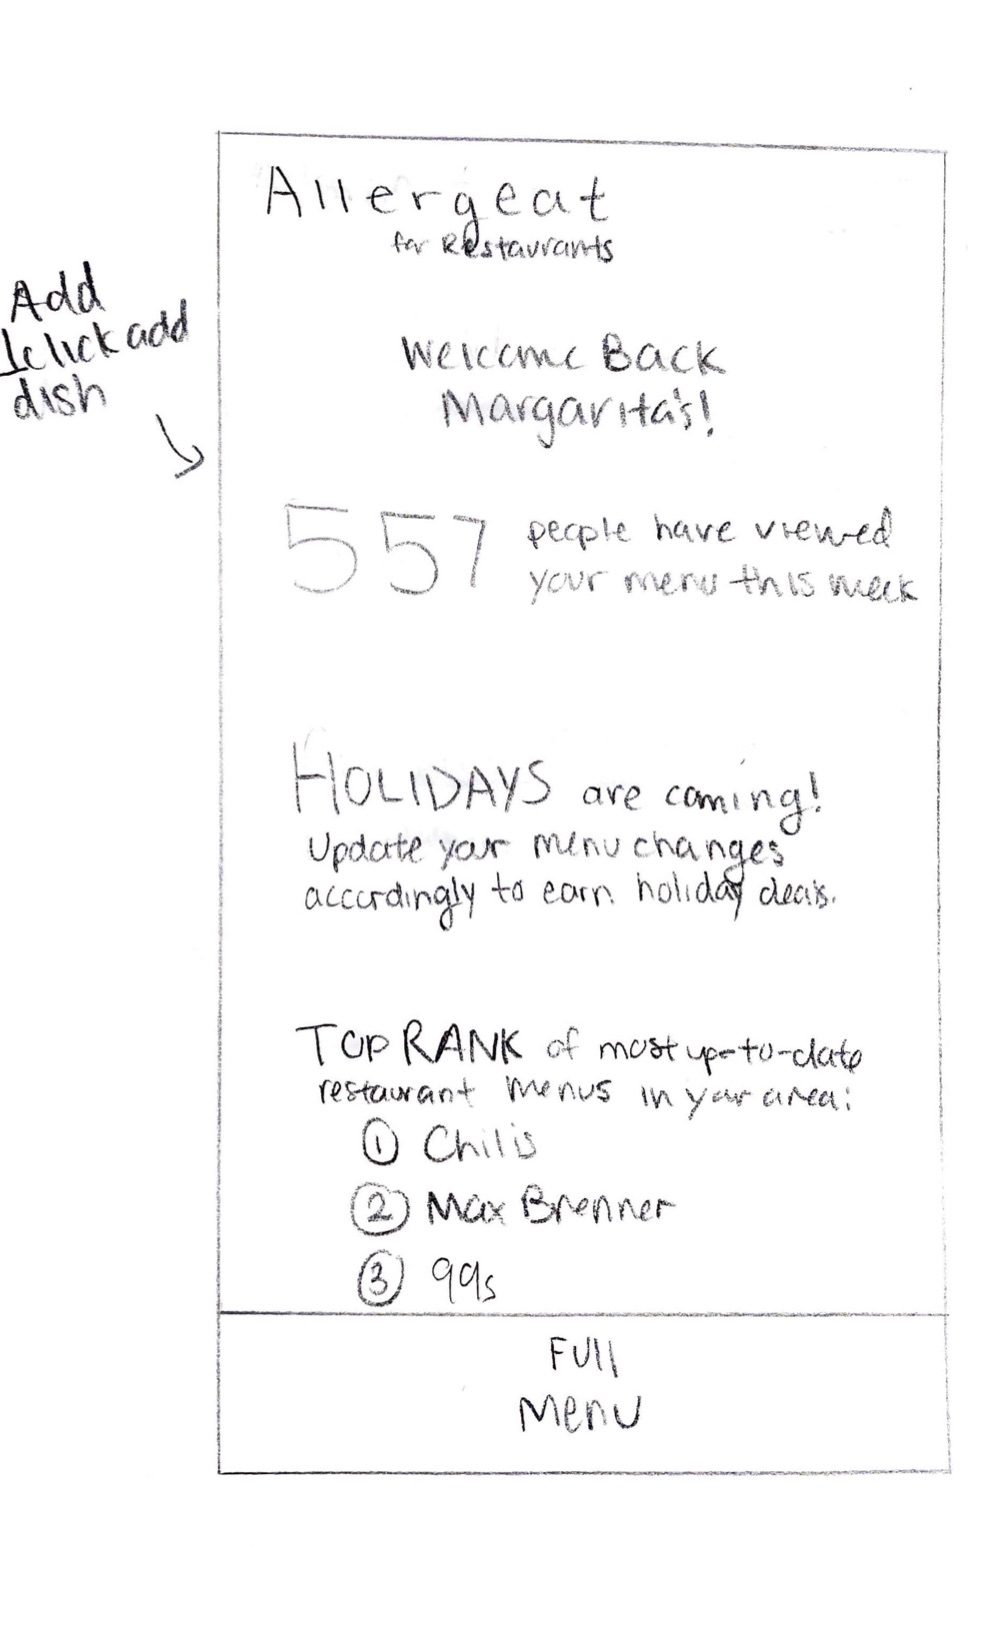 Allergeat
for Restaurants
Add
1click add
dish
Welcome Back
Margarita's!
557 people have viewed
your menu this week
HOLIDAYS are coming!
Update your menu changes
accordingly to earn holiday deals.
TOP RANK of most up-to-date
restaurant menus in your area:
① Chilis
② Max Brenner
③ 99s
Full
Menu